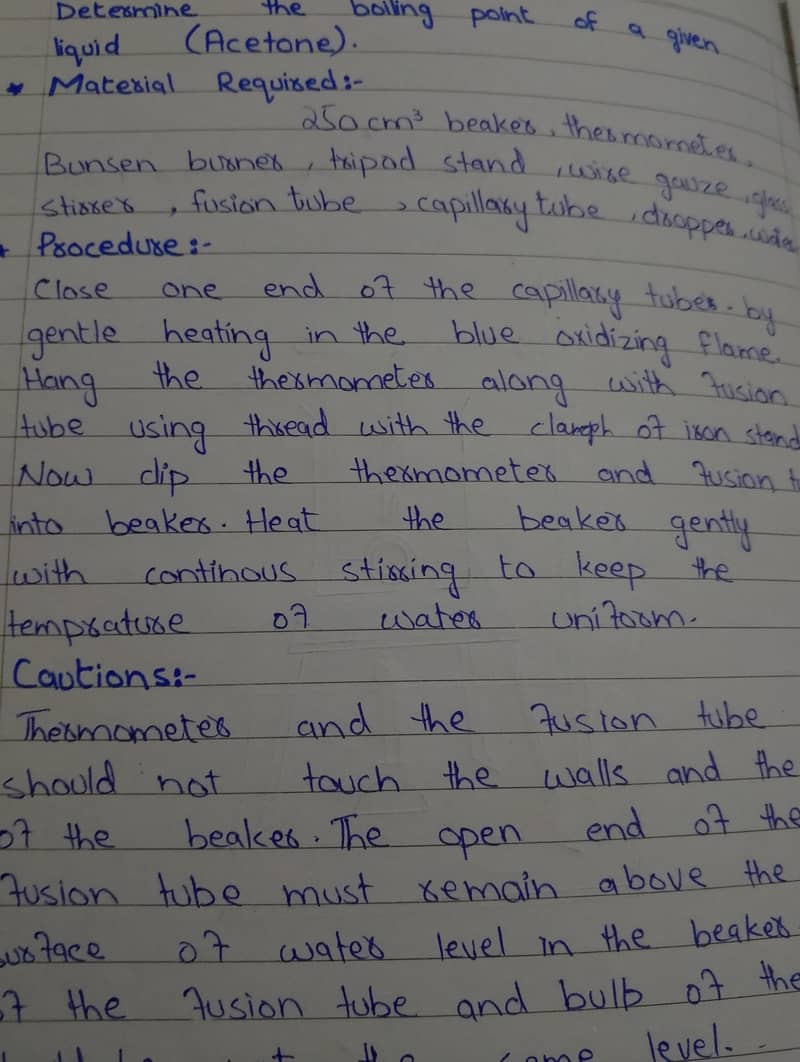 Determine the boiling point of a given
liquid (Acetone).
* Material Required:-
250 cm³ beaker, thermometer,
Bunsen burner, tripod stand, wire gauze, glass
stirrer, fusion tube, capillary tube, dropper, water
* Procedure:-
Close one end of the capillary tubes. by
gentle heating in the blue oxidizing flame.
Hang the thermometer along with fusion
tube using thread with the clamph of iron stand
Now dip the thermometer and fusion t
into beaker. Heat the beaker gently
with continous stirring to keep the
temprature of water uniform.
Cautions:-
Thermometer and the fusion tube
should not touch the walls and the
of the beaker. The open end of the
fusion tube must remain above the
surface of water level in the beaker
of the fusion tube and bulb of the
the same level.